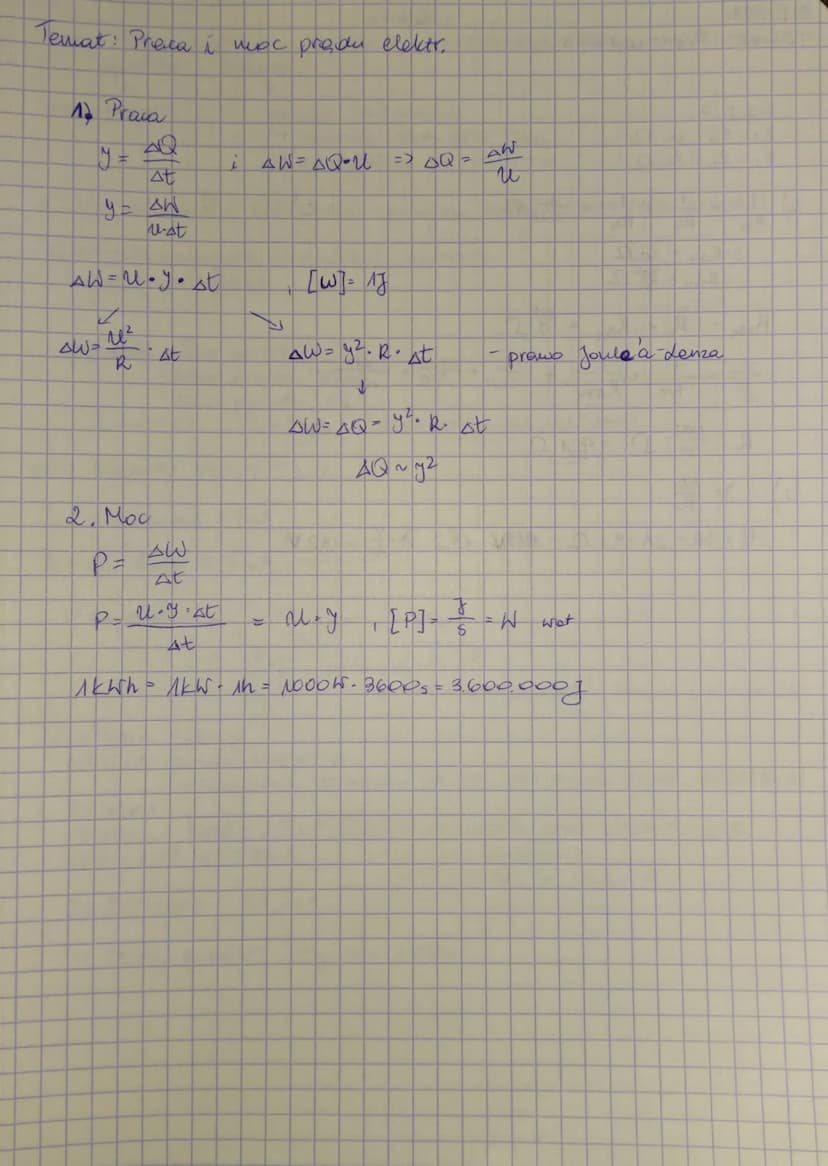 Temat: Praca i moc prądu elektr.
1) Praca
y = ΔQ/Δt i ΔW = ΔQ·U => ΔQ = ΔW/U
y = ΔW/U·Δt
ΔW = U·y·Δt , [W] = 1J
ΔW = U²/R · Δt ΔW = y²·R·Δt - prawo Joule'a-Lenza
ΔW = ΔQ = y²·R·Δt
ΔQ ~ y²
2. Moc
P = ΔW/Δt
P = U·y·Δt/Δt = U·y , [P] = J/s = W wat
1kWh = 1kW·1h = 1000W·3600s = 3.600.000J